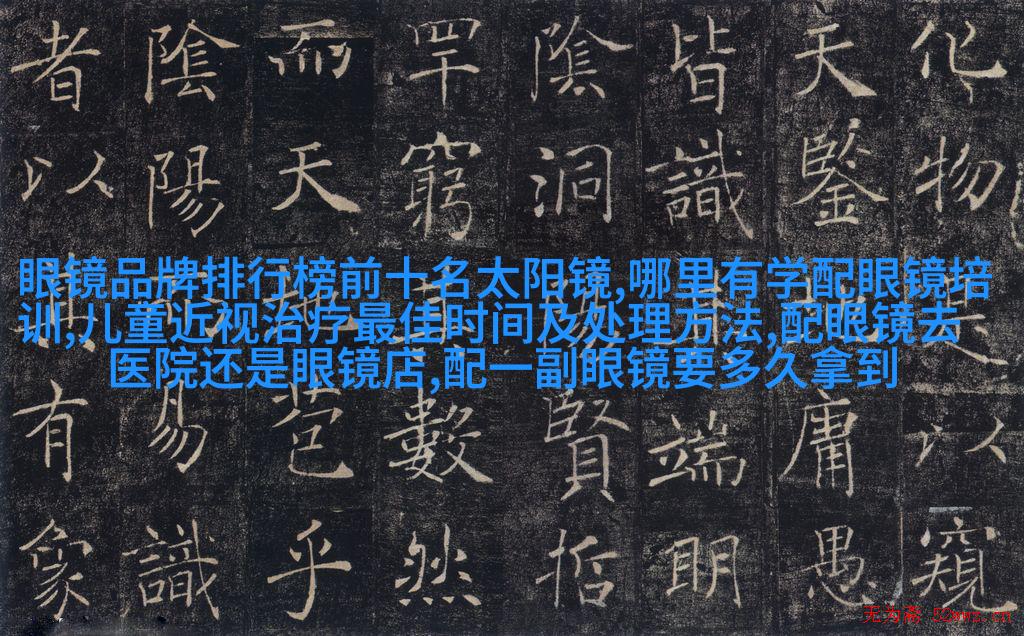 化物以窺
天鑒庸愚
皆識端明
陰洞賢哲
罕窮數然
而天苞乎
陰陽易識
者以有象
眼镜品牌排行榜前十名太阳镜,哪里有学配眼镜培
训,儿童近视治疗最佳时间及处理方法,配眼镜去
医院还是眼镜店,配一副眼镜要多久拿到
无为斋 52wwz.cn